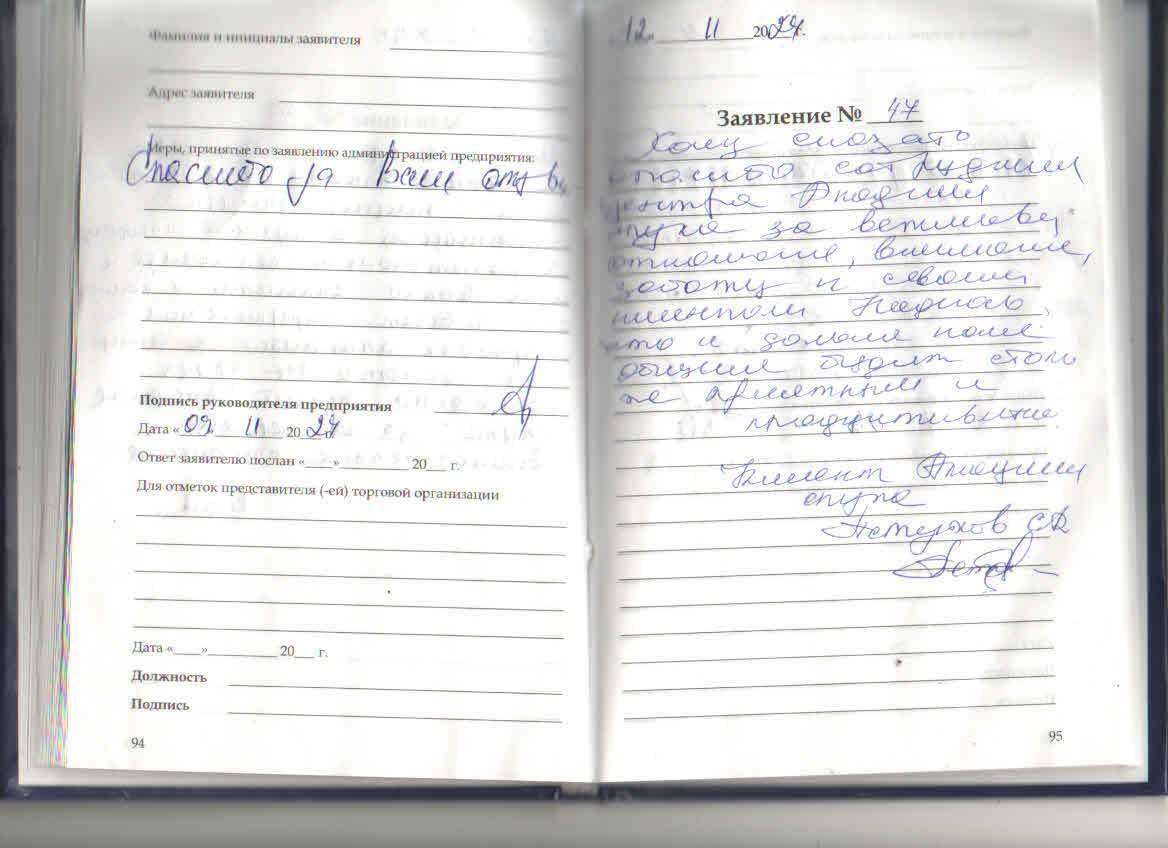 Фамилия и инициалы заявителя
Адрес заявителя
Меры, принятые по заявлению администрацией предприятия:
Спасибо за Ваш отзыв
Подпись руководителя предприятия
Дата «09 11 2024 г.
Ответ заявителю послан «___» ________ 20___ г.
Для отметок представителя (-ей) торговой организации
Дата «____»__________ 20___ г.
Должность
Подпись
94
12 11 2024г.
Заявление № 47
Хочу сказать
спасибо сотрудникам
центра
за вежливое
отношение, внимание,
заботу к своим
клиентам Надеюсь,
что и дальше наше
общение будет столь
же приятным и
продуктивным.
Клиент
Петухов
95